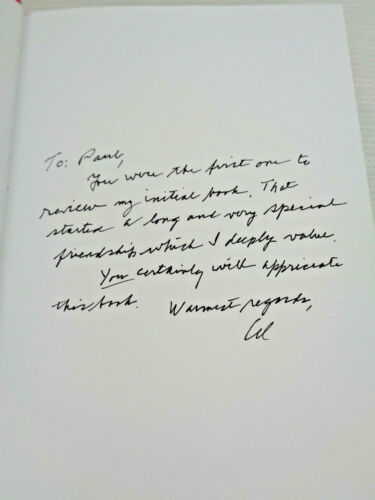 To: Paul,
You were the first one to
review my initial book. That
started a long and very special
friendship which I deeply value.
You certainly will appriciate
this book. Warmest regards,
Al